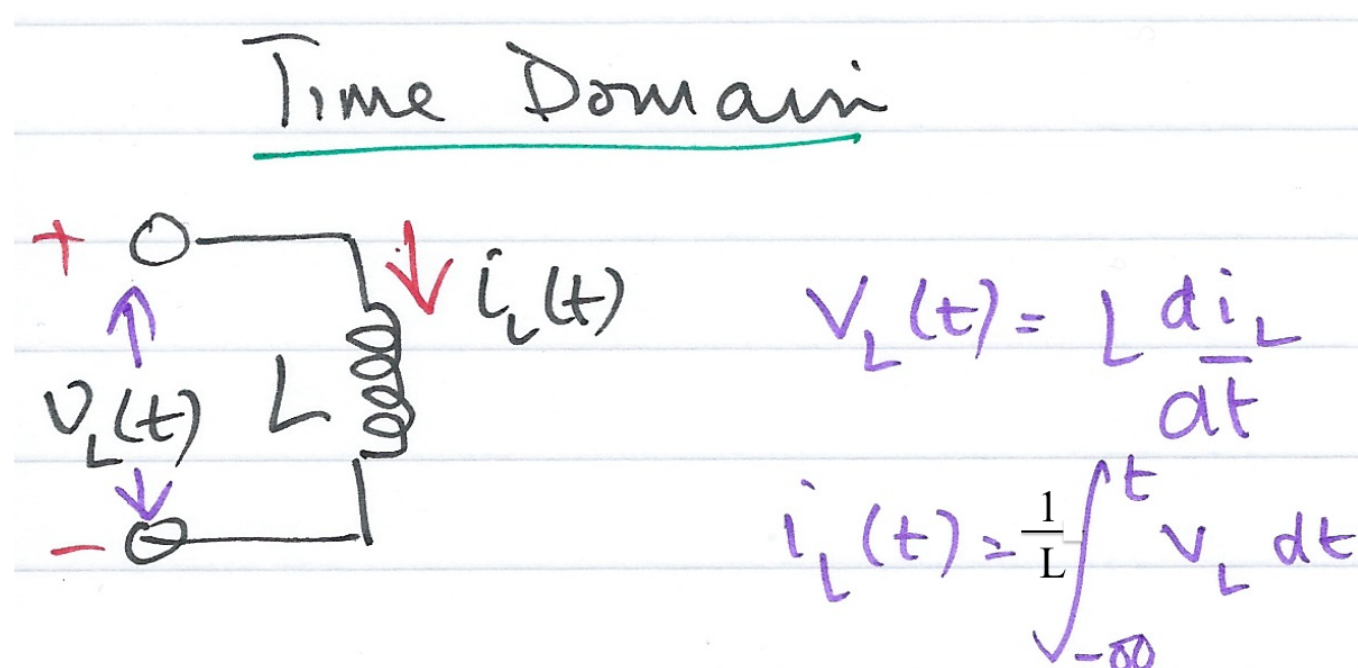 Time Domain
+
i_L(t)
v_L(t)
L
−
V_L(t) = L di_L/dt
i_L(t) = 1/L ∫_{-∞}^{t} v_L dt